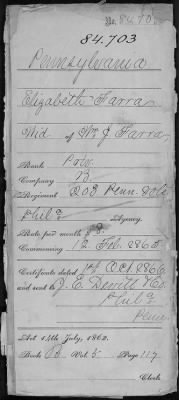 No. 84703
84.703
Pennsylvania
Elizabeth Farra
Wid of Wm J Farra,
Rank Priv.
Company B
Regiment 203 Penn. Vols
Phila Agency.
Rate per month $8.
Commencing 12 Feb. 1865
Certificate dated 1st Oct 1866
and sent to J. C. Devitt &Co.
Phila
Penn.
Act 14th July, 1862.
Book B Vol. 5 Page 117
Clerk.